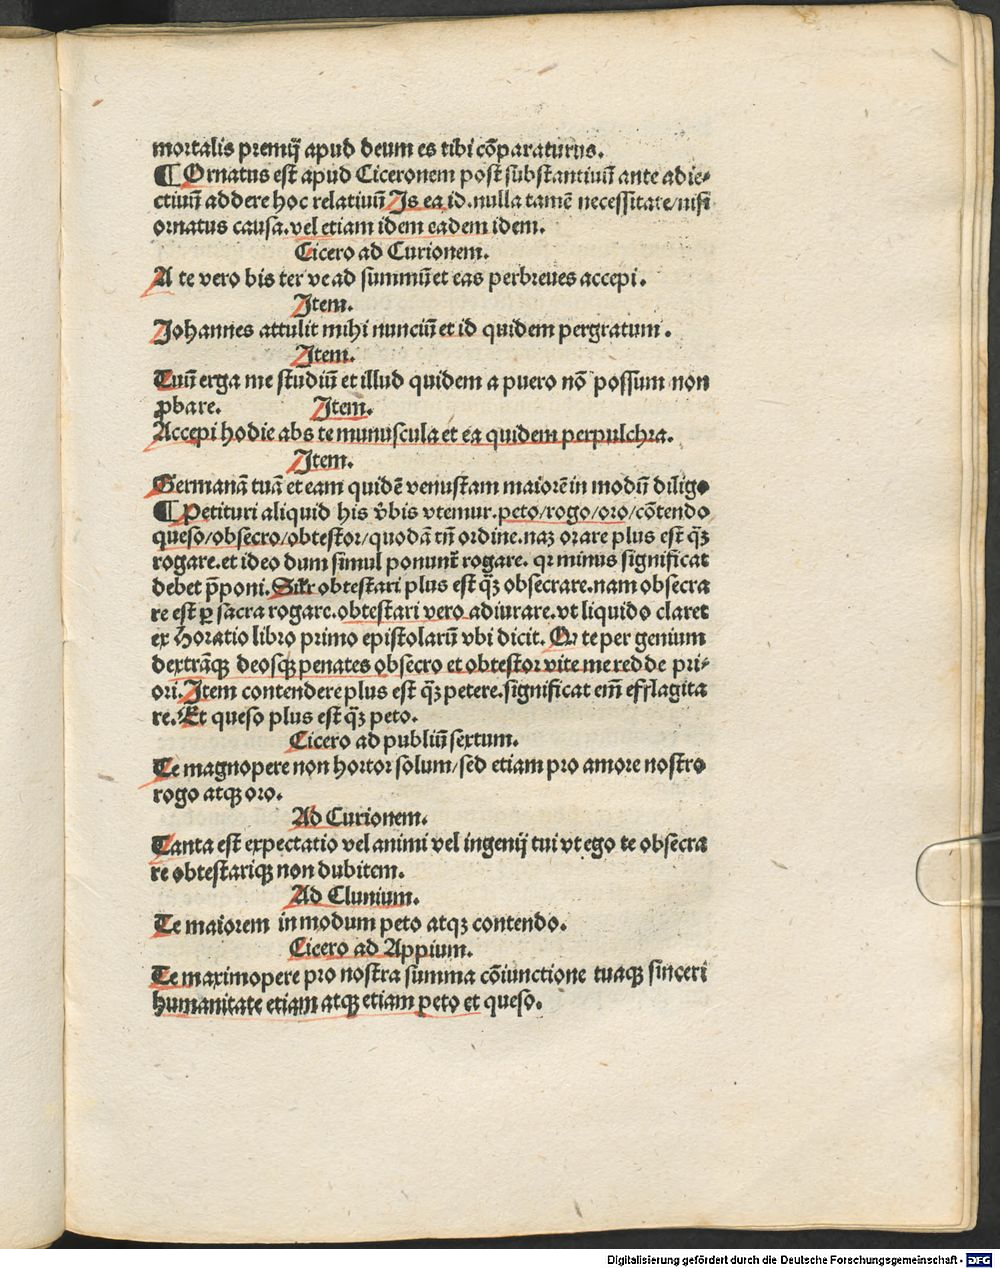 mortalis premij apud deum es tibi cōparaturus.
¶ Ornatus est apud Ciceronem post substantiuū ante adie⸗
ctiuū addere hoc relatiuū Is ea id. nulla tamē necessitate/nisi
ornatus causa. vel etiam idem eadem idem.
Cicero ad Curionem.
A te vero bis ter ve ad summū et eas perbreues accepi.
Item.
Johannes attulit mihi nunciū et id quidem pergratum.
Item.
Tuū erga me studiū et illud quidem a puero nō possum non
ꝓbare. Item.
Accepi hodie abs te munuscula et ea quidem perpulchra.
Item.
Germanā tuā et eam quidē venustam maiorē in modū diligo
¶ Petituri aliquid his v̄bis vtemur. peto/rogo/oro/cōtendo
queso/obsecro/obtestor/quodā tn̄ ordine. naꝫ orare plus est qꝫ̄
rogare. et ideo dum simul ponunt̄ rogare. qr minus significat
debet p̄poni. Silr obtestari plus est qꝫ̄ obsecrare. nam obsecra
re est ꝑ sacra rogare. obtestari vero adiurare. vt liquido claret
ex Horatio libro primo epistolarū vbi dicit. Qv te per genium
dextrāqꝫ deosqꝫ penates obsecro et obtestor vite me redde pri⸗
ori. Item contendere plus est qꝫ̄ petere. significat em̄ efflagita
re. Et queso plus est qꝫ̄ peto.
Cicero ad publiū sextum.
Te magnopere non hortor solum/sed etiam pro amore nostro
rogo atqꝫ oro.
Ad Curionem.
Tanta est expectatio vel animi vel ingenij tui vt ego te obsecra
re obtestariqꝫ non dubitem.
Ad Clunium.
Te maiorem in modum peto atqꝫ contendo.
Cicero ad Appium.
Te maximopere pro nostra summa cōiunctione tuaqꝫ sinceri
humanitate etiam atqꝫ etiam peto et queso.
Digitalisierung gefördert durch die Deutsche Forschungsgemeinschaft - DFG